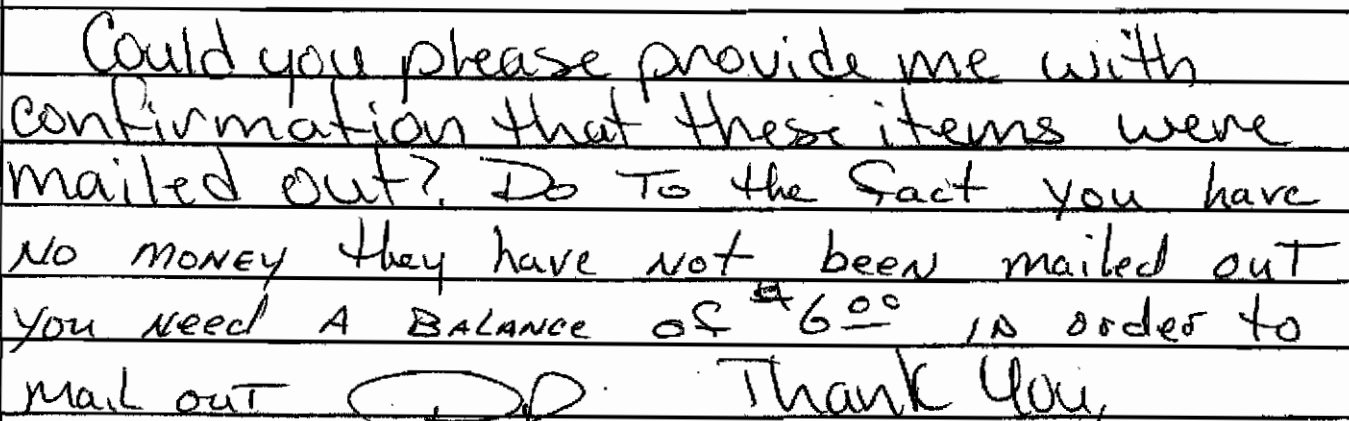 Could you please provide me with
confirmation that these items were
mailed out? Do To the fact you have
NO MONEY they have Not been mailed out
You Need A BALANCE of $6.00 IN order to
Mail out Thank You,